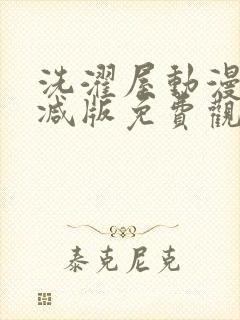 洗濯屋動漫
減版免費觀
泰克尼克